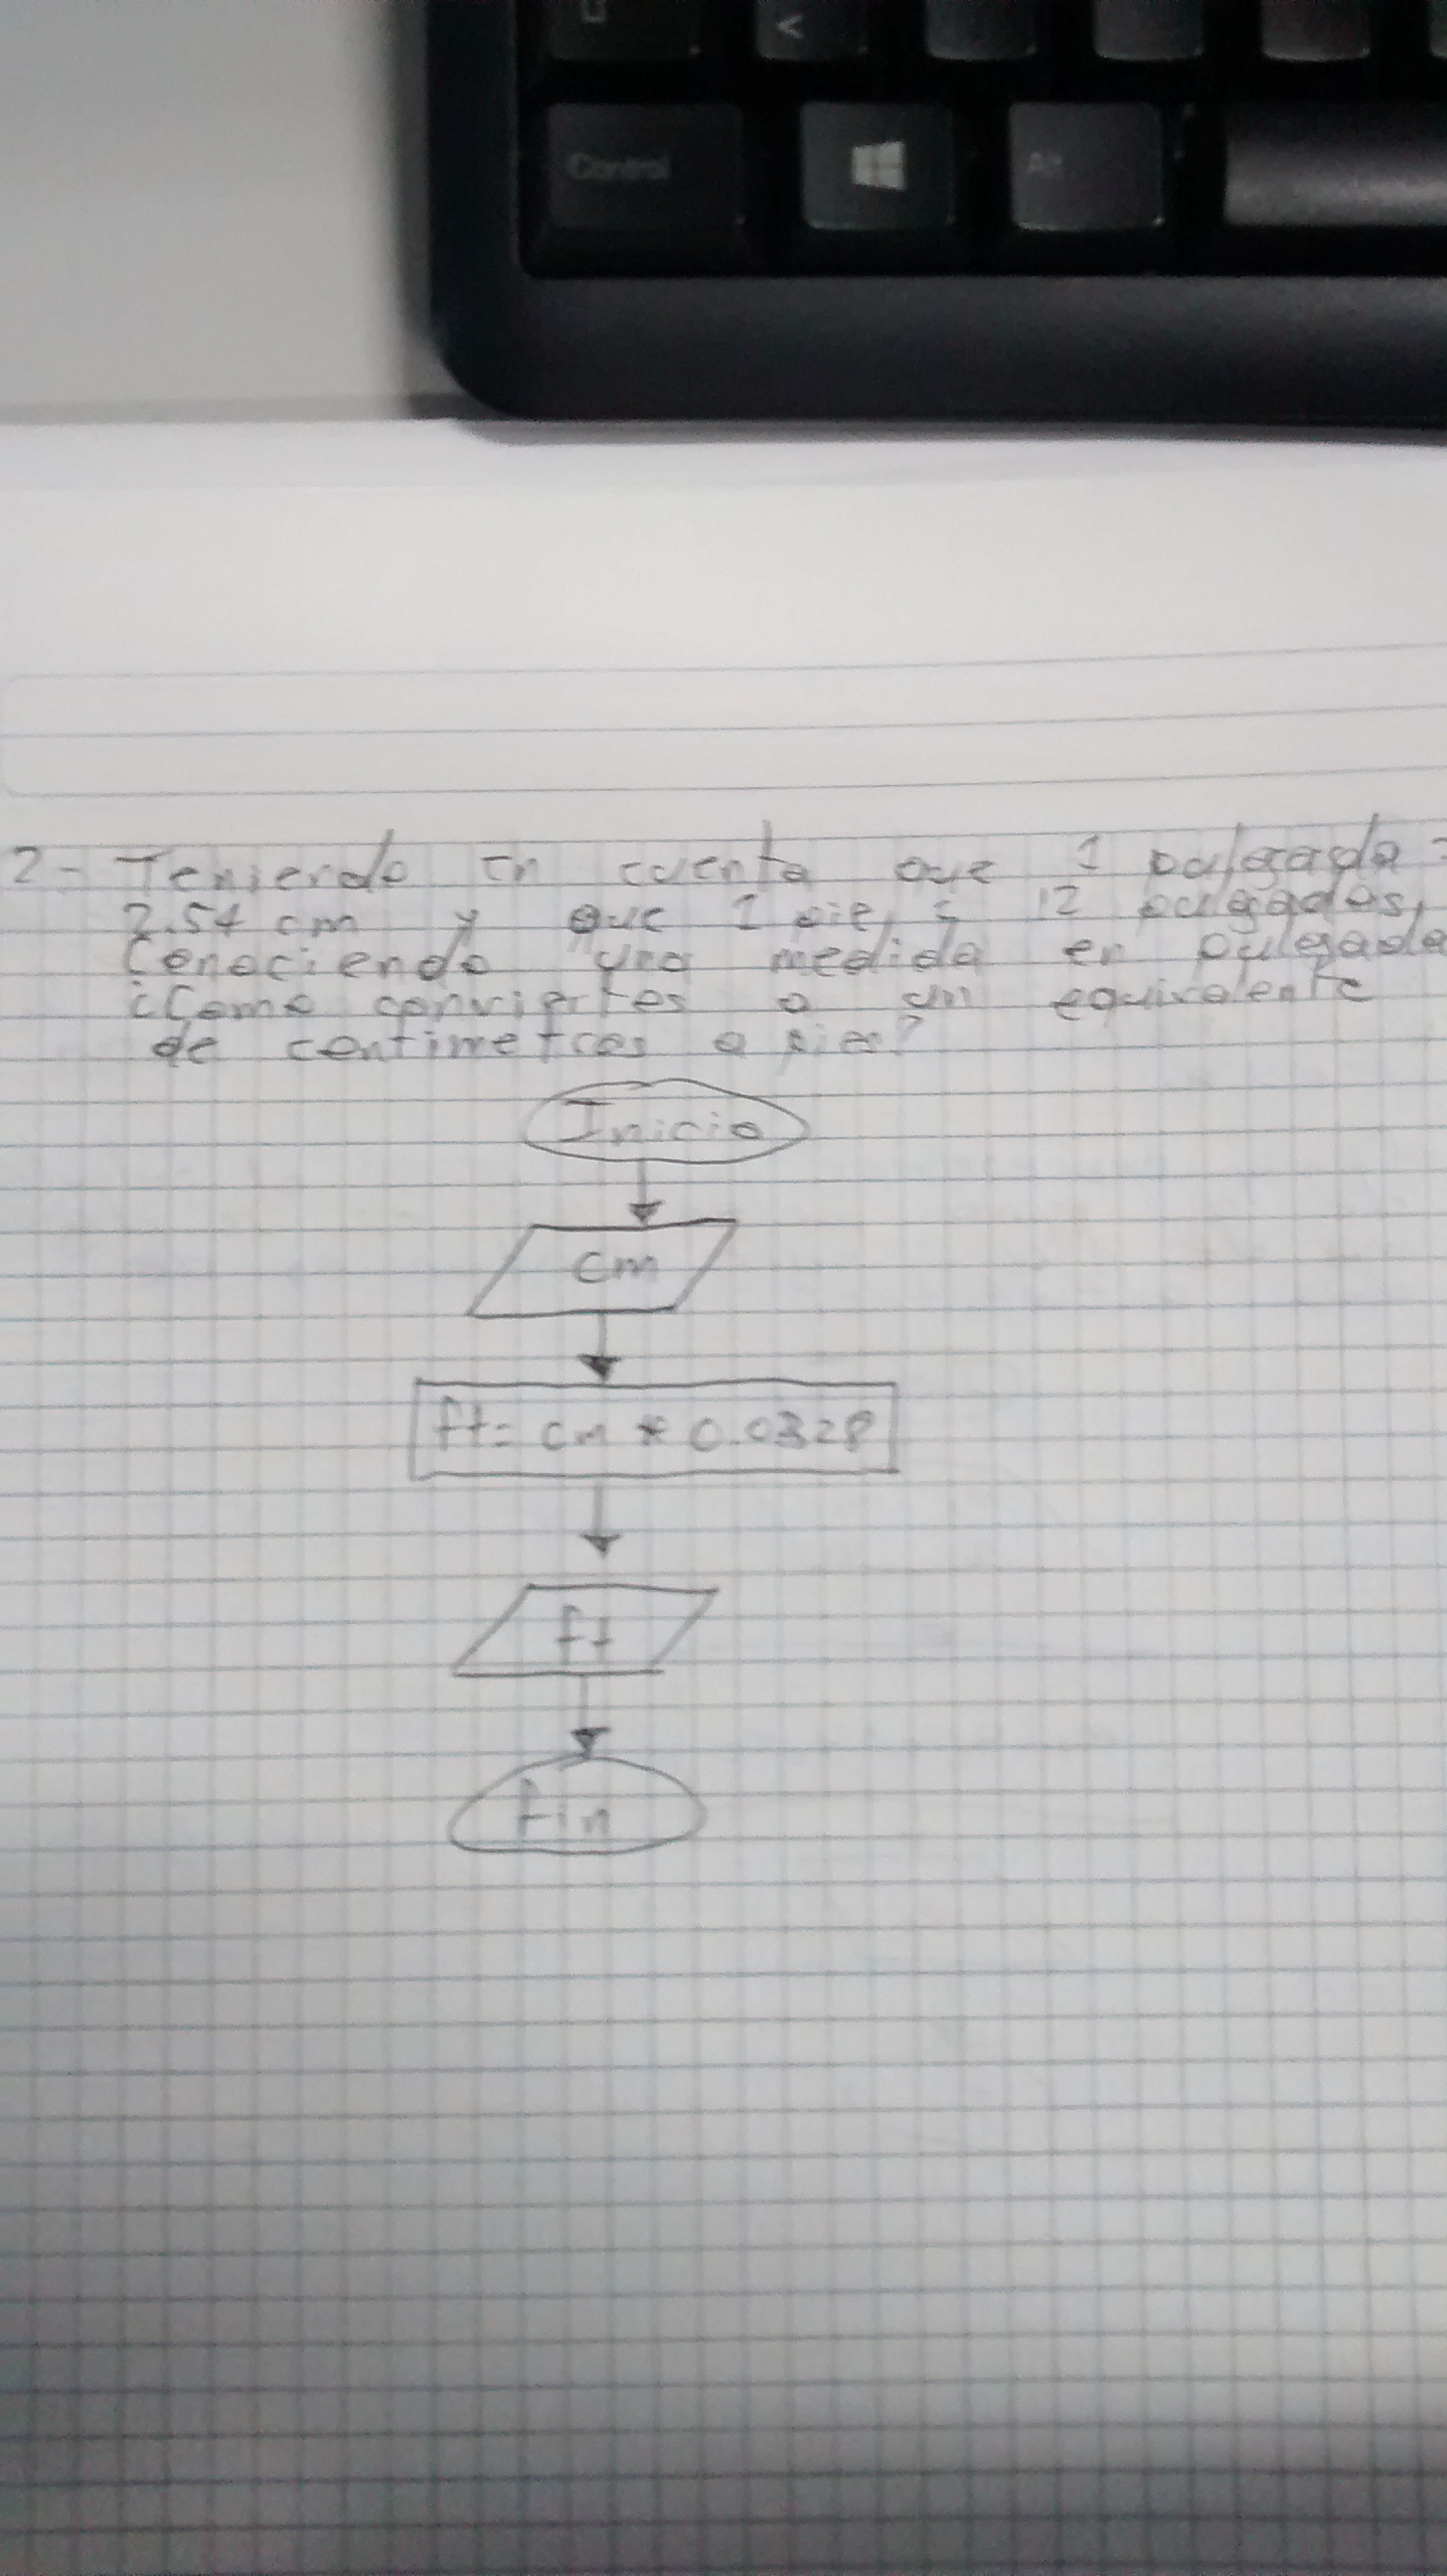 <
Control
Alt
2- Teniendo en cuenta que 1 pulgada =
2.54 cm y que 1 pie, = 12 pulgadas,
Conociendo una medida en pulgada
¿Como conviertes a un equivalente
de centimetros a pies?
Inicio
cm
ft= cm * 0.0328
ft
fin